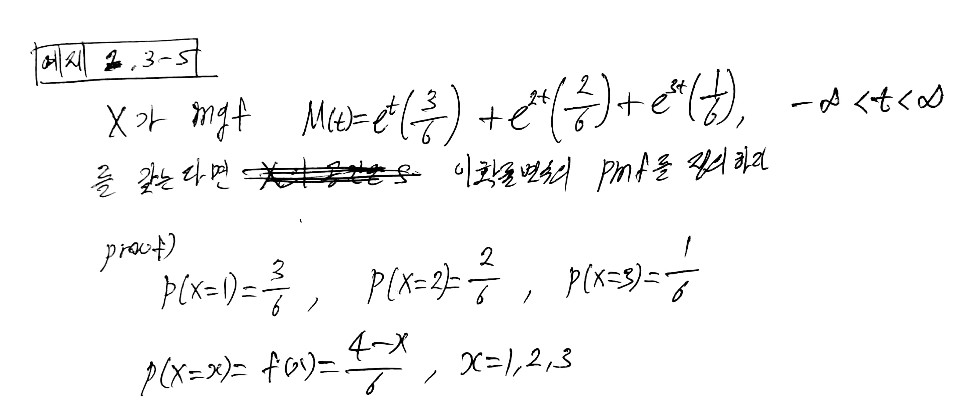 예제 2.3-5
X가 mgf M(t)=e^t(3/6)+e^{2t}(2/6)+e^{3t}(1/6), -∞<t<∞
를 갖는다면 이 확률변수의 pmf를 정의하라
proof)
P(X=1)=3/6, P(X=2)=2/6, P(X=3)=1/6
P(X=x)=f(x)=(4-x)/6, x=1,2,3